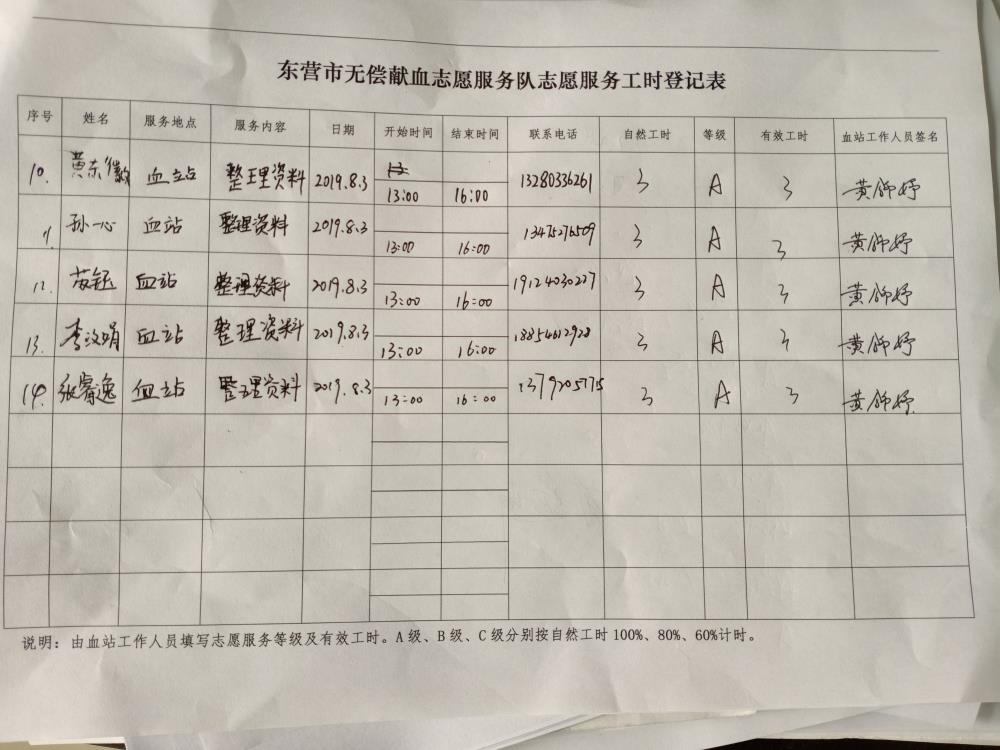 东营市无偿献血志愿服务队志愿服务工时登记表
序号 姓名 服务地点 服务内容 日期 开始时间 结束时间 联系电话 自然工时 等级 有效工时 血站工作人员签名
10. 黄东徽 血站 整理资料 2019.8.3 13:00 16:00 13280336261 3 A 3
11. 孙一心 血站 整理资料 2019.8.3 13:00 16:00 13475276509 3 A 3
12. 苏钰 血站 整理资料 2019.8.3 13:00 16:00 19124030227 3 A 3
13. 李汶娟 血站 整理资料 2019.8.3 13:00 16:00 18854612928 3 A 3
14. 张睿逸 血站 整理资料 2019.8.3 13:00 16:00 3 A 3
说明：由血站工作人员填写志愿服务等级及有效工时。A级、B级、C级分别按自然工时100%、80%、60%计时。